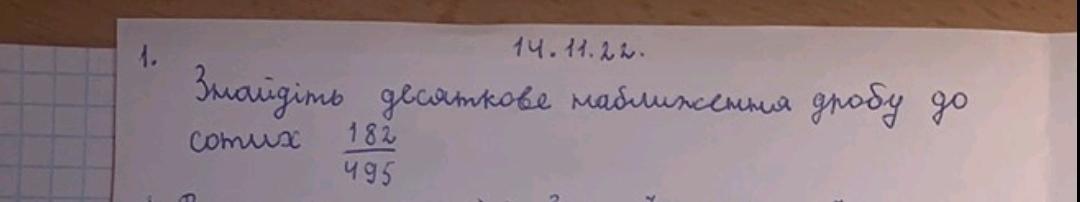 14.11.22.
1.
Знайдіть десяткове наближення дробу до
сотих 182/495